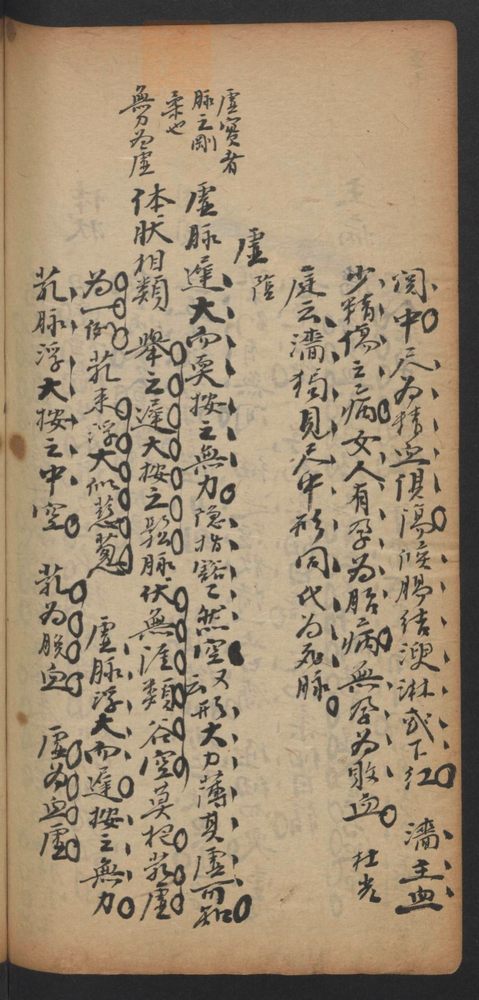 關中尺為精血俱傷候腸結溲淋或下紅 濇主血
少精傷之病女人有孕為胎病無孕為敗血 杜光
庭云濇獨見尺中形同代為死脉
虛 陰
虛脉遲大而耎按之無力隐指豁豁然空又云形大力薄其虛可知
虛實者
脉之剛
柔也
無力為虛
体狀相類 舉之遲大按之鬆脉伏無涯類谷空莫把芤虛
為一例芤来浮大似慈葱 虛脉浮大而遲按之無力
芤脉浮大按之中空 芤為脱血 虛為血虛